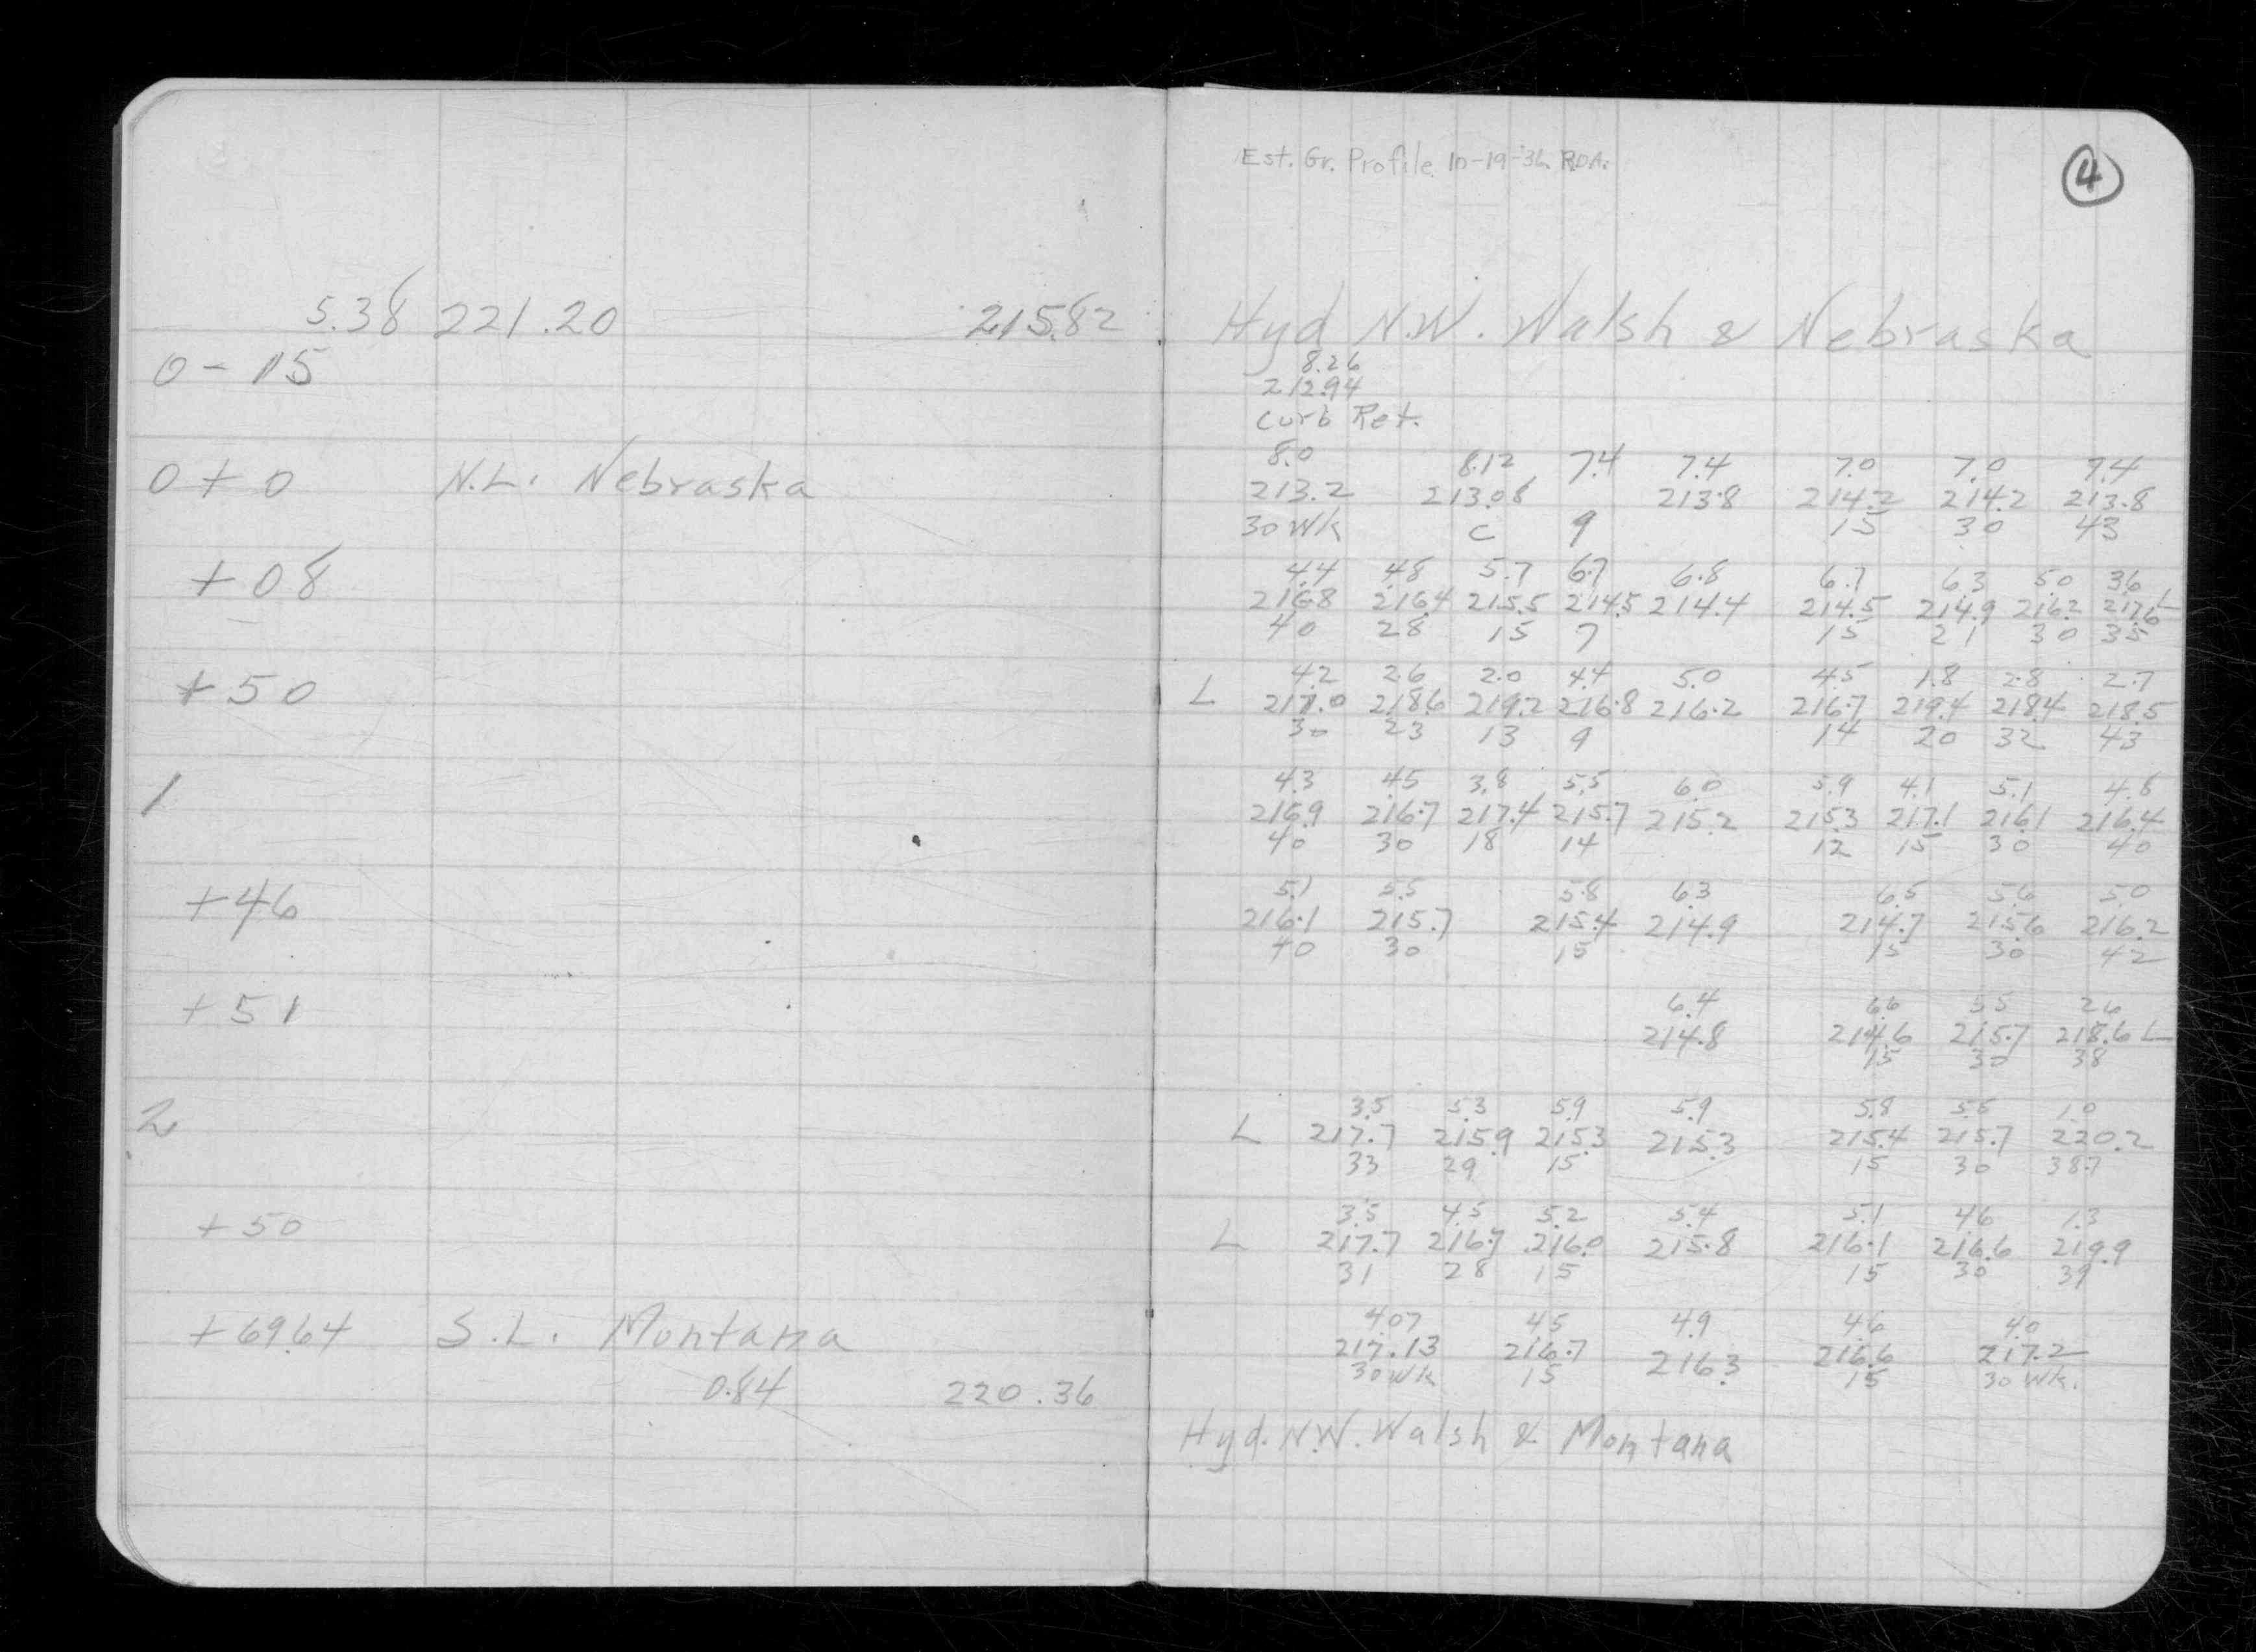 Est. Gr. Profile 10-19-36 R.D.A.
4
5.38 221.20 215.82 Hyd N.W. Walsh & Nebraska
0-15 8.26
212.94
Curb Ret.
8.0 8.12 7.4 7.4 7.0 7.0 7.4
0+0 N.L. Nebraska 213.2 213.08 213.8 214.2 214.2 213.8
30 Wk C 9 15 30 43
4.4 4.8 5.7 6.7 6.8 6.7 6.3 5.0 3.6
+08 216.8 216.4 215.5 214.5 214.4 214.5 214.9 216.2 217.6 L
40 28 15 7 15 21 30 35
4.2 2.6 2.0 4.4 5.0 4.5 1.8 2.8 2.7
+50 L 217.0 218.6 219.2 216.8 216.2 216.7 219.4 218.4 218.5
30 23 13 9 14 20 32 43
4.3 4.5 3.8 5.5 6.0 5.9 4.1 5.1 4.8
1 216.9 216.7 217.4 215.7 215.2 215.3 217.1 216.1 216.4
40 30 18 14 12 15 30 40
5.1 5.5 5.8 6.3 6.5 5.6 5.0
+46 216.1 215.7 215.4 214.9 214.7 215.6 216.2
40 30 15 15 30 42
6.4 6.6 5.5 2.6
+51 214.8 214.6 215.7 218.6 L
15 30 38
3.5 5.3 5.9 5.9 5.8 5.5 1.0
2 L 217.7 215.9 215.3 215.3 215.4 215.7 220.2
33 29 15 15 30 38.7
3.5 4.5 5.2 5.4 5.1 4.6 1.3
+50 L 217.7 216.7 216.0 215.8 216.1 216.6 219.9
31 28 15 15 30 39
4.07 4.5 4.9 4.6 4.0
+69.64 S.L. Montana 217.13 216.7 216.3 216.6 217.2
30 Wk 15 15 30 Wk.
0.84 220.36
Hyd. N.W. Walsh & Montana